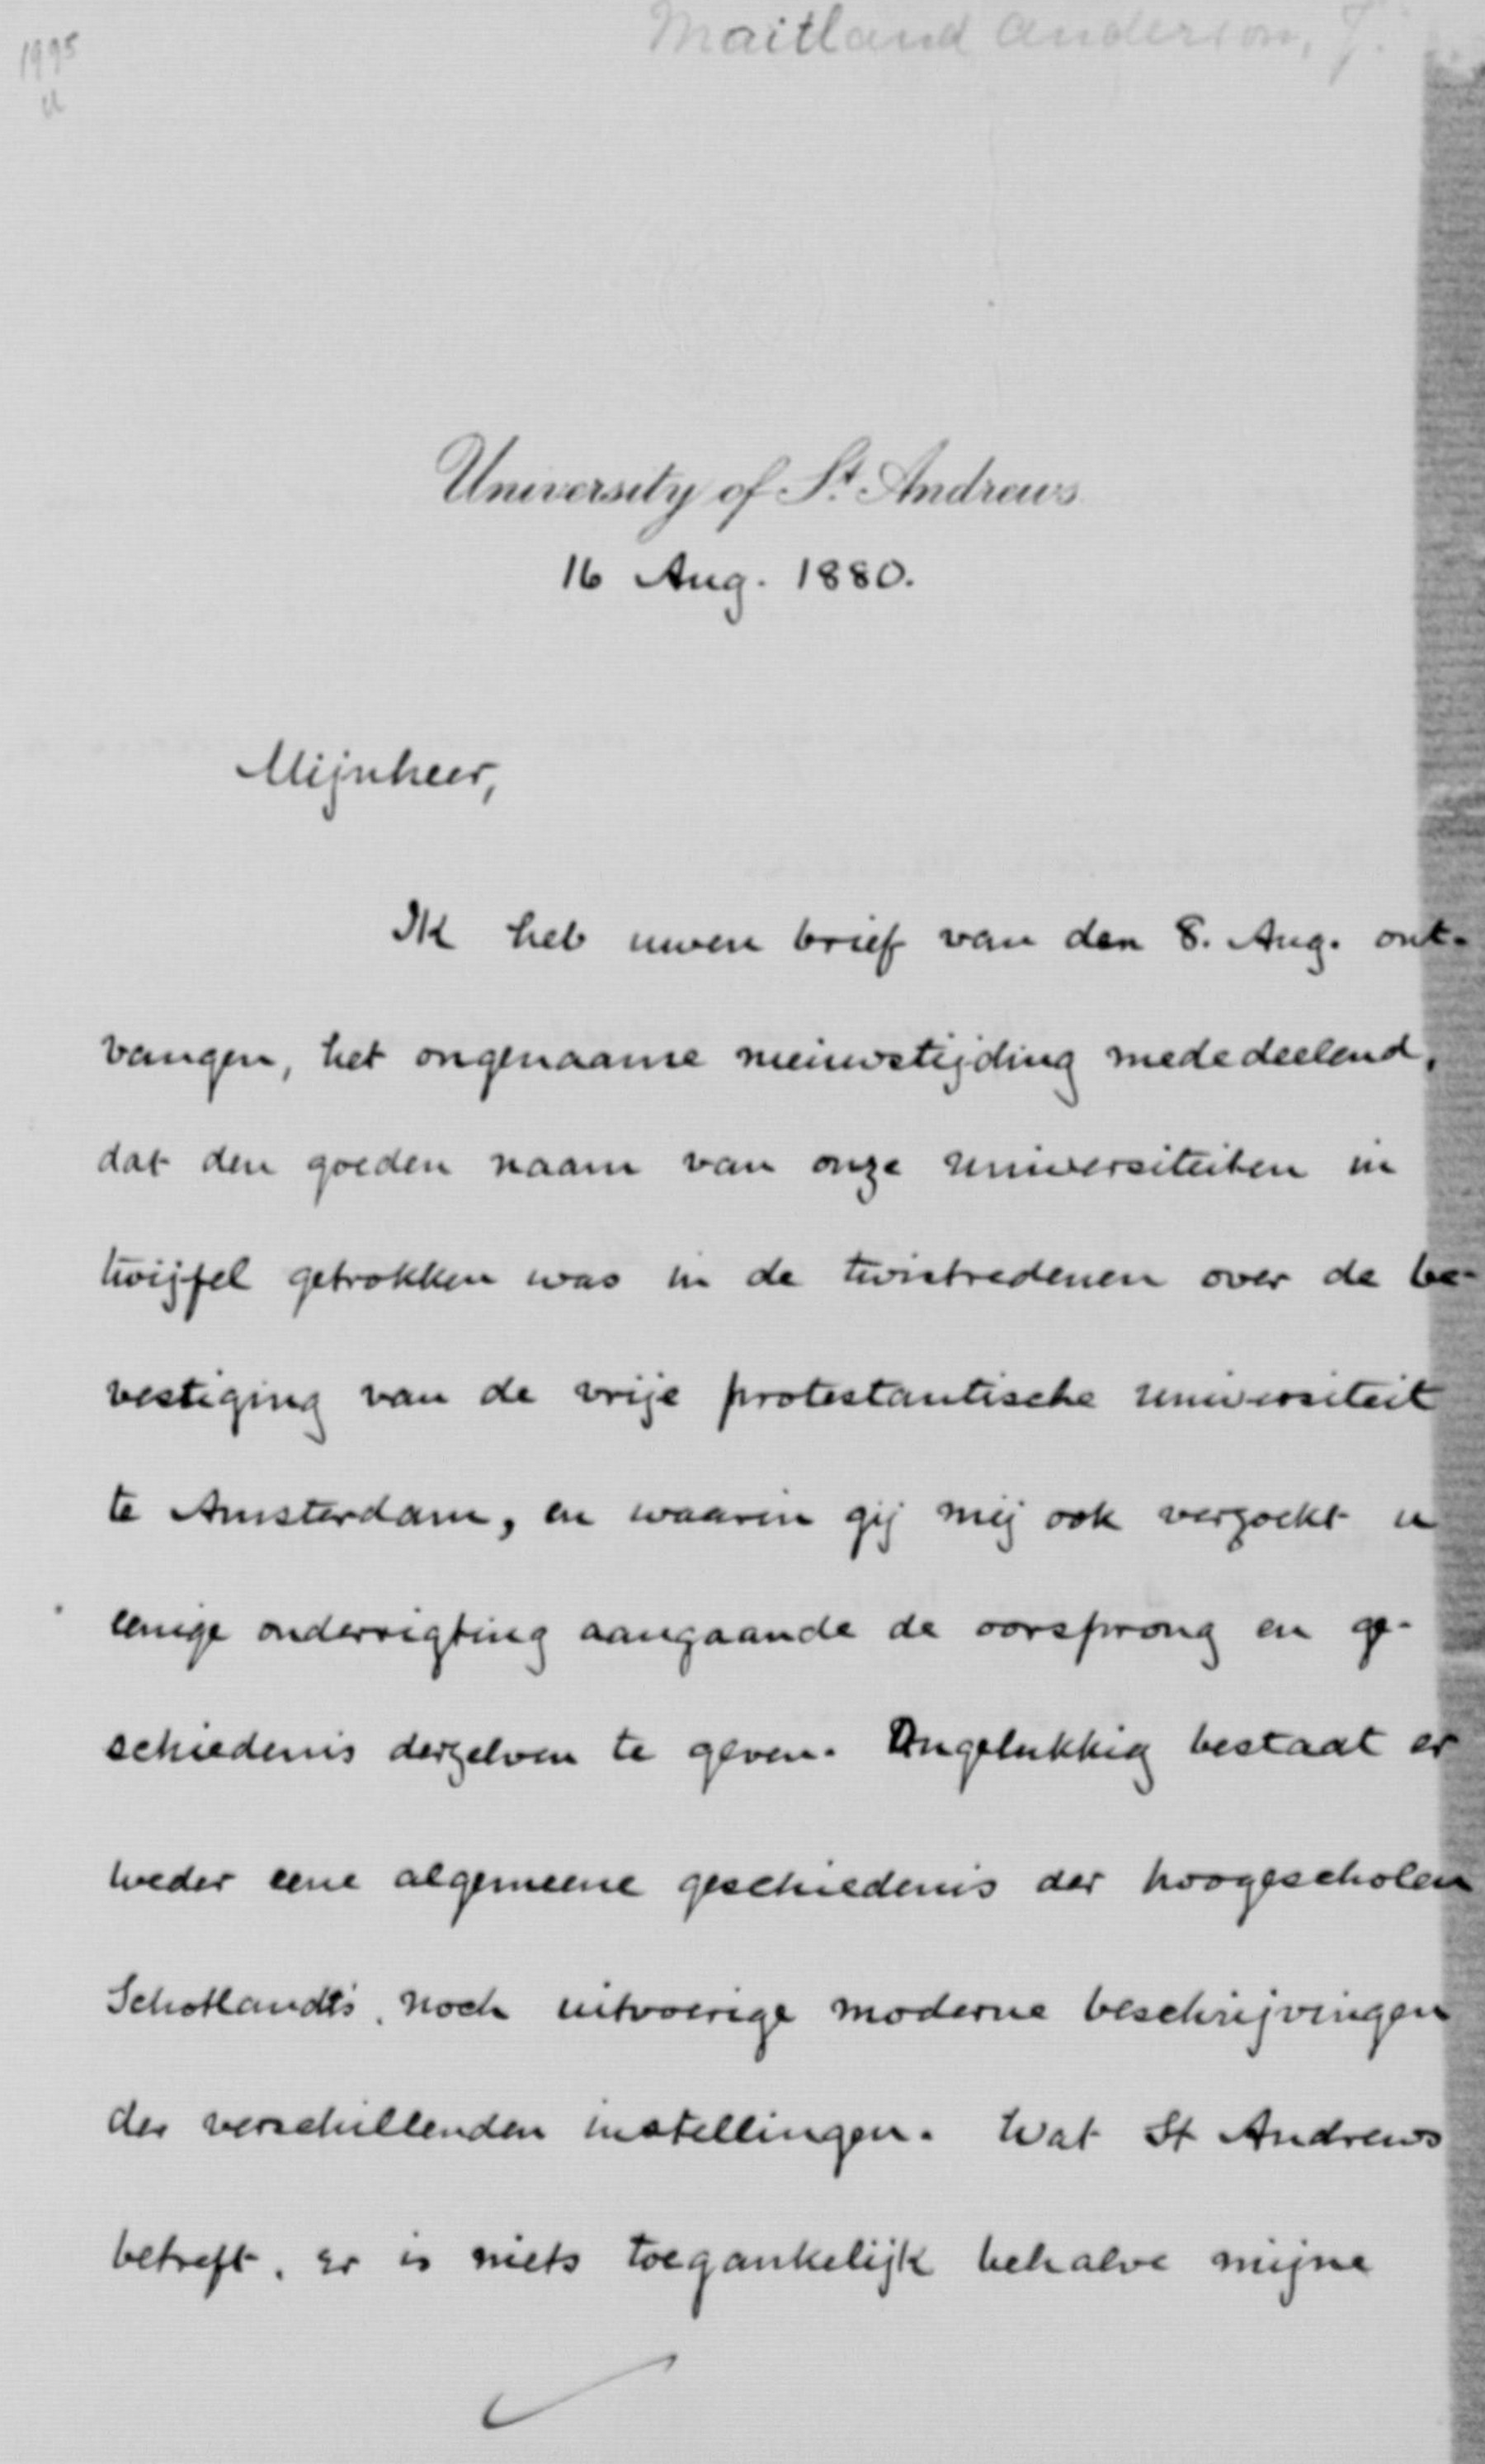 Maitland Anderson, J.
1995
University of St. Andrews
16 Aug. 1880.
Mijnheer,
Ik heb uwen brief van den 8. Aug. ont-
vangen, het ongenaame nieuwstijding mededeelend,
dat den goeden naam van onze universiteiten in
twijfel getrokken was in de twistredenen over de be-
vestiging van de vrije protestantische universiteit
te Amsterdam, en waarin gij mij ook verzoekt u
eenige onderrigting aangaande de oorsprong en ge-
schiedenis derzelven te geven. Ongelukkig bestaat er
weder eene algemeene geschiedenis der hoogescholen
Schotlandts, noch uitvoerige moderne beschrijvingen
der verschillenden instellingen. Wat St Andrews
betreft, er is niets toegankelijk behalve mijne